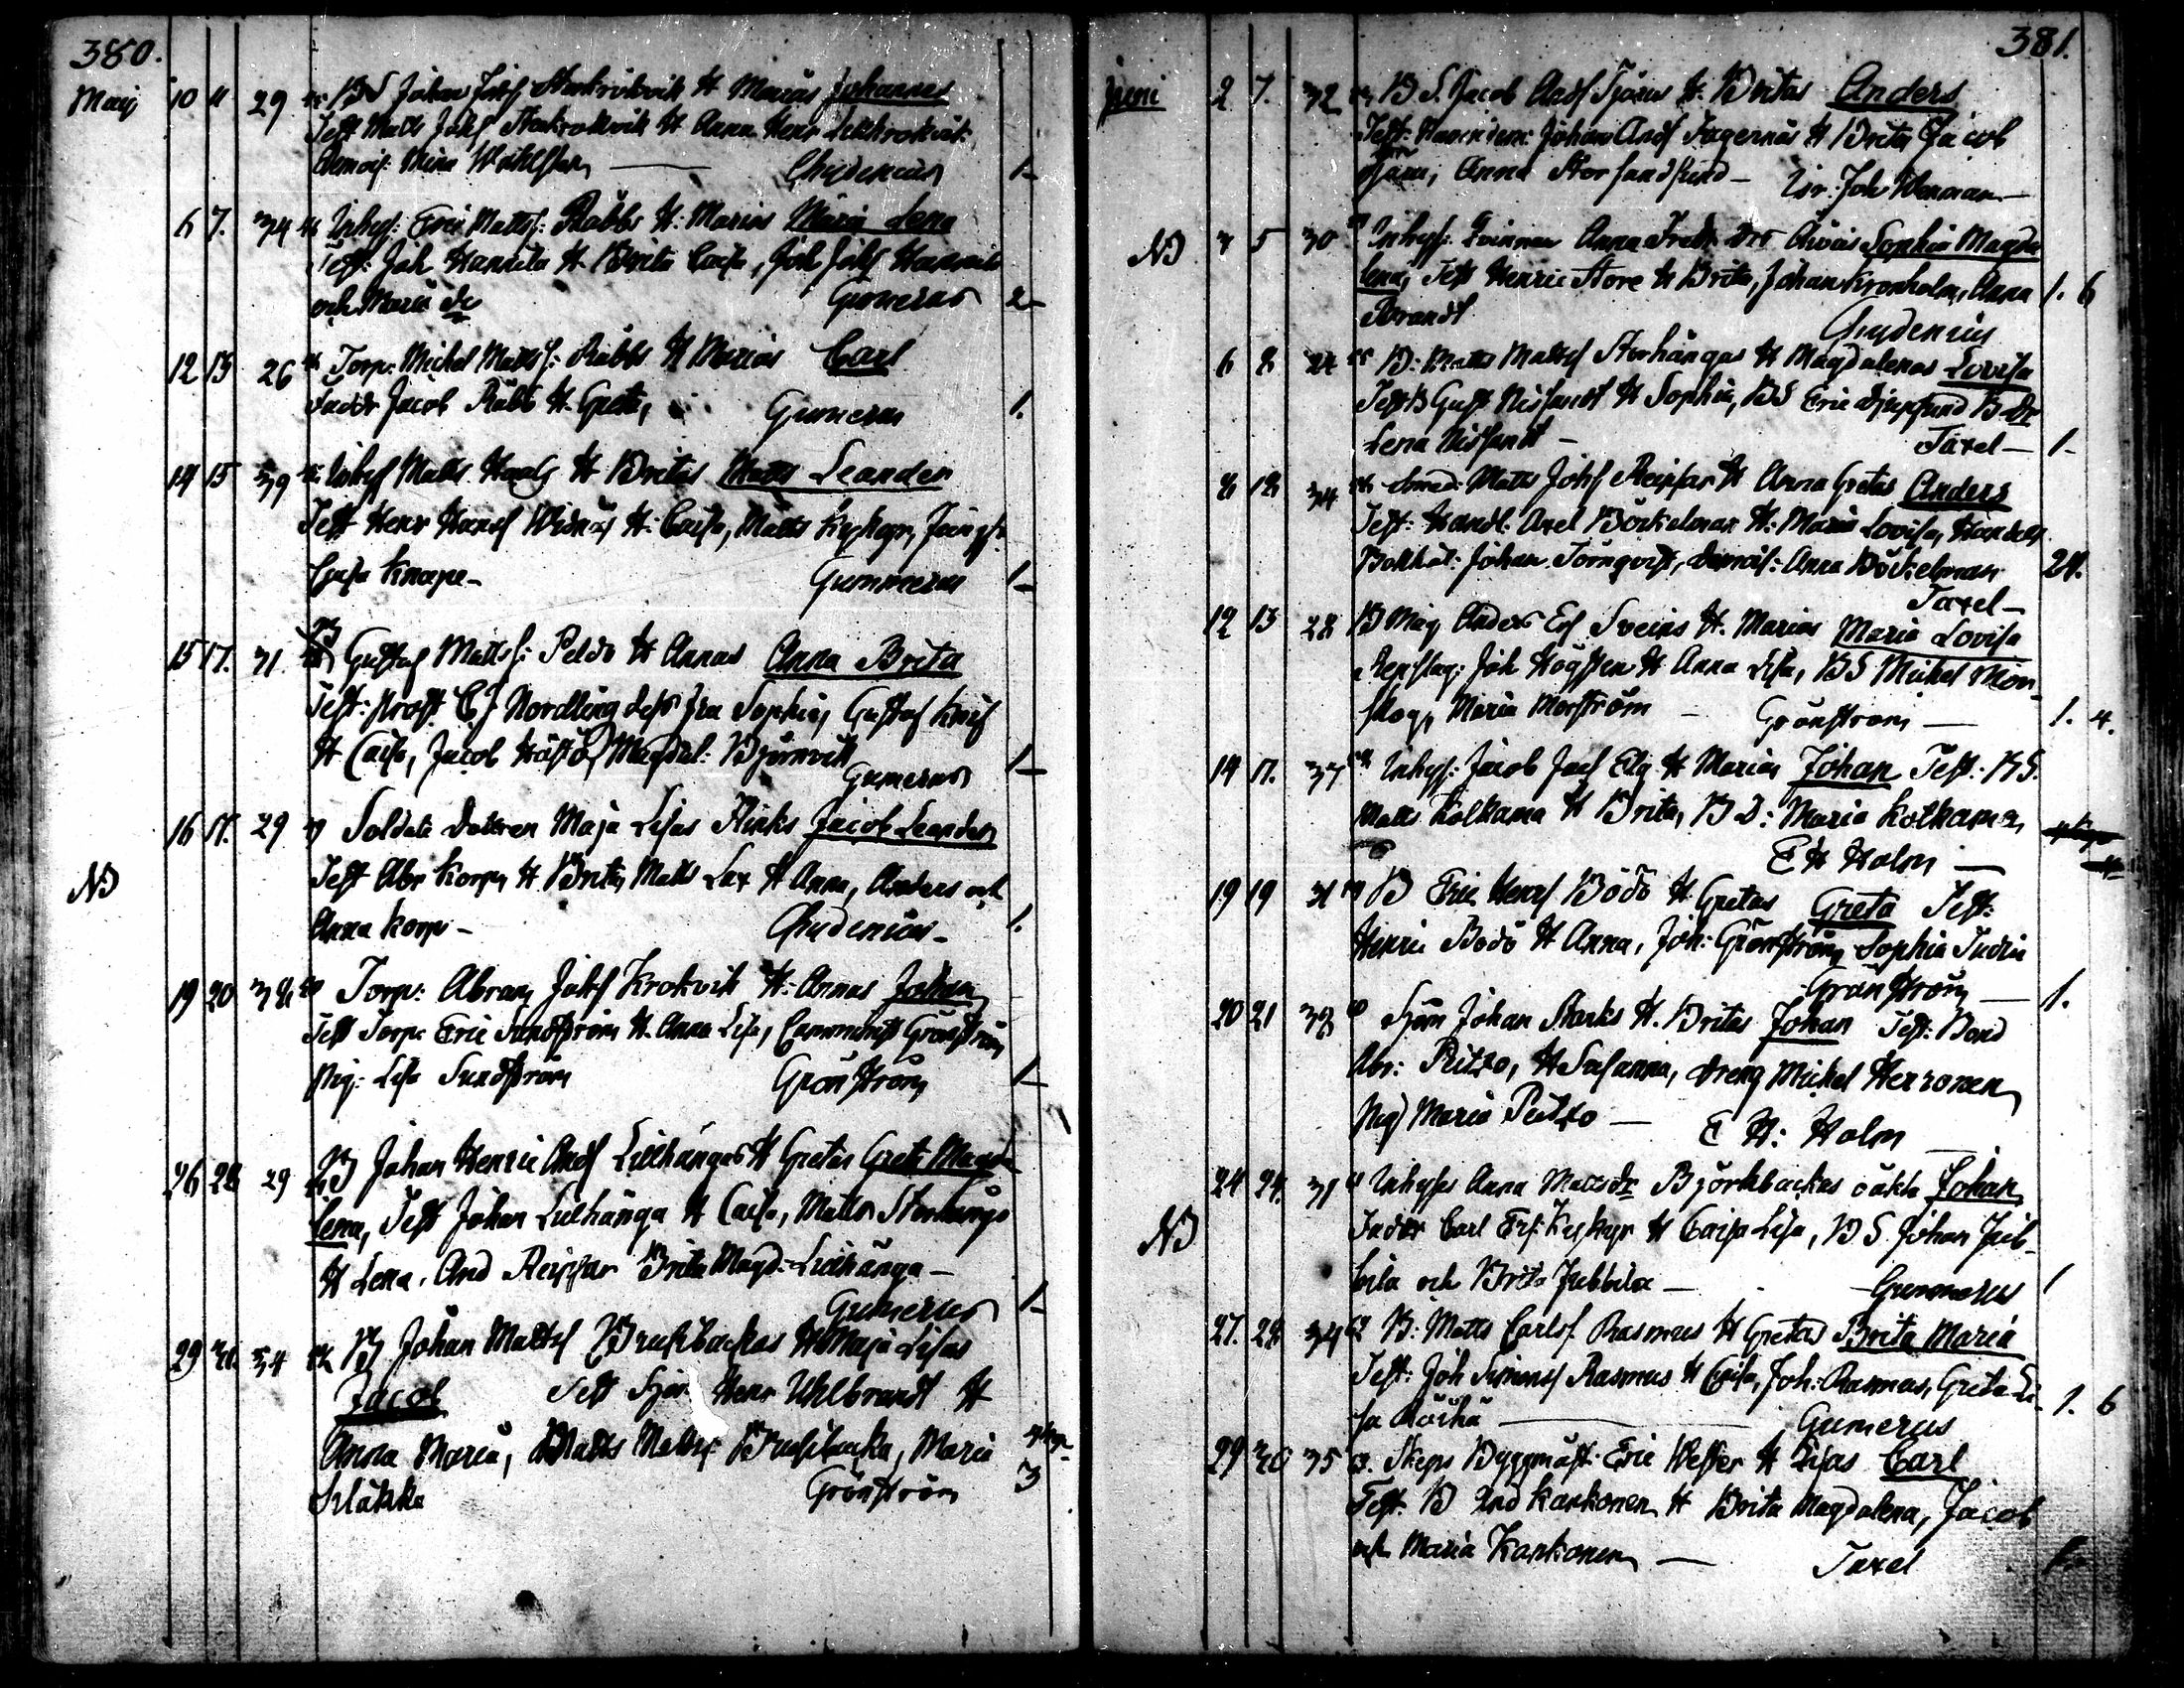 380.
Maij 10 11 29 BS Johan Johsf Storkrokvik H Marias Johannes
Test Matts Johsf Storkrokvik H Anna Henr Lillkrokvik
Demois: Mina Wahlsten — Chydenius 1-
6 7. 34 Inhys: Eric Mattss: Räbbs H: Marias Maria Lena
Test: Joh Hannila H. Brita Caisa, Joh Johsf Hannila
och Maria do Gumerus 2-
12 13 26 Torp: Michel Mattss: Räbbs H Marias Carl
Faddr Jacob Räbb H. Greta, Gumerus 1.
14 15 39 Inhys Matts H Britas Matts Leander
Test Henr Hansf Widnäs H: Caisa, Matts Kyrkegr, Jungfr
Caisa Knape - Gummerus 1-
15 17. 31 B Gustaf Mattss: Peldo H Annas Anna Brita
Test: Prost C J Nordling dess fru Sophia, Gustaf Knif
H Caisa, Jacob Hästö, Magdal: Björnvik
Gumerus 1-
16 17. 29 Soldats dottren Maja Lisas Flinks Jacob Leander
NB Test Abr Korp, H. Brita, Matts Lax H Anna, Anders och
Anna Korp - Chydenius - 1.
19 20 38 Torp: Abram Johsf Krokvik H: Annas Johan
Test Torp: Eric Sundström H. Anna Lisa, Commenist Grönström
Pig: Lisa Sundström Grönström 1-
26 28 29 B Johan Henric Andsf Lillhångas H Gretas Greta Magda
lena, Test Johan Lillhånga H Caisa, Matts Storhånga
H Lena, And Reipsar Brita Magd: Lillhånga -
Gumerus 1-
29 31. 34 B Johan Mattsf Brusibackas H Maja Lisas
Jacob Test Sjöm Henr Uhlbrandt H
Anna Maria, Matts Mattss: Brusibacka, Maria
Klåkka Grönström 3
381.
Juni 2 7. 32 B S. Jacob Andsf Sjöars H. Britas Anders
Test: Johan Andsf Fagernäs H Brita, Jacob
Anna Storsandsund - Joh Wenman -
NB 3 5 30 Inhys: Qvinnan Anna Fredr Drs Sophia Magda
lena, Test Henric Store H Brita, Johan Kronholm, Anna 1. 6
Brandt Chydenius
6 8 24 B: Matts Mattsf Storhångas H Magdalenas Lovisa
Test B Gust Nissandt H Sophia, BS Eric Djupsund B Dr
Lena Nissandt - Taxel - 1-
8 12 34 Smed: Matts Johsf Reipsar H Anna Gretas Anders
Test: Handl: Axel Böckelman H: Maria Lovisa, Handels
Bokhål: Johan Törnqvist, Demois: Anna Böckelman 24.
Taxel -
12 13 28 B Måg Anders Ers Sveins H. Marias Maria Lovisa
Repslag: Joh Högsten H Anna Lisa, BS Michel Mon-
skog, Maria Morström - Grönstrom - 1. 4.
14 17. 37 Inhys: Jacob Jacsf Elg H Marias Johan Test: BS.
Matts Kolkama H Brita, B D: Maria Kolkama,
E H Holm -
19 19 31 B Eric Henrs Bodö H. Gretas Greta Test:
Henric Bodö H Anna, Joh: Grönström, Sophia Judin
Grönström - 1.
20 21 32 Sjöm Johan Starks H. Britas Johan Test: Bond
Abr: Ritzo, H Susanna, dreng Michel Herronen,
Pig Maria Ritzo - E H: Holm
24 24. 31 Inhyses Anna Mattsdr Björkbackas oäkta Johan
NB Faddr Carl Ers: Kyrkegr H Caisa Lisa, B S Johan Jub-
bila och Brita Jubbila - Gummerus 1
27. 28 34 B: Matts Carlsf Rasmus H Gretas Brita Maria
Test: Joh Simonsf Rasmus H Caisa, Joh: Rasmus, Greta Li- 1. 6
sa Råihä — Gumerus
29 30 35 Skeps Byggmäst: Eric Wester H Lisas Carl
Test: B And Karkonen H Brita Magdalena, Jacob
och Maria Karkonen — Taxel 1-